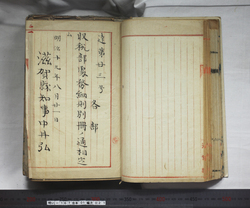 達第廿三号
各部
収税部処務細則別冊ノ通相定
明治十九年八月廿一日
滋賀縣知事中井弘